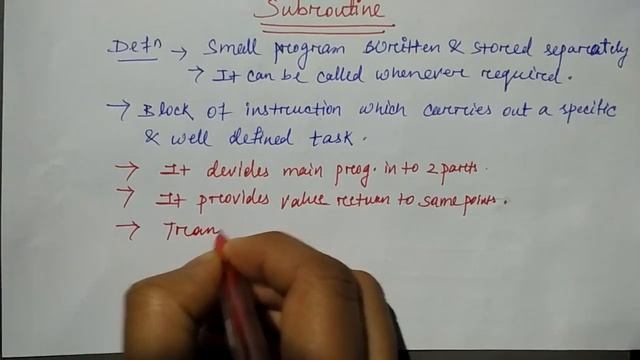 Subroutine
Defn → Small program written & stored separately
→ It can be called whenever required.
→ Block of instruction which carries out a specific
& well defined task.
→ It devides main prog. in to 2 parts.
→ It provides value return to same points.
→ Tran